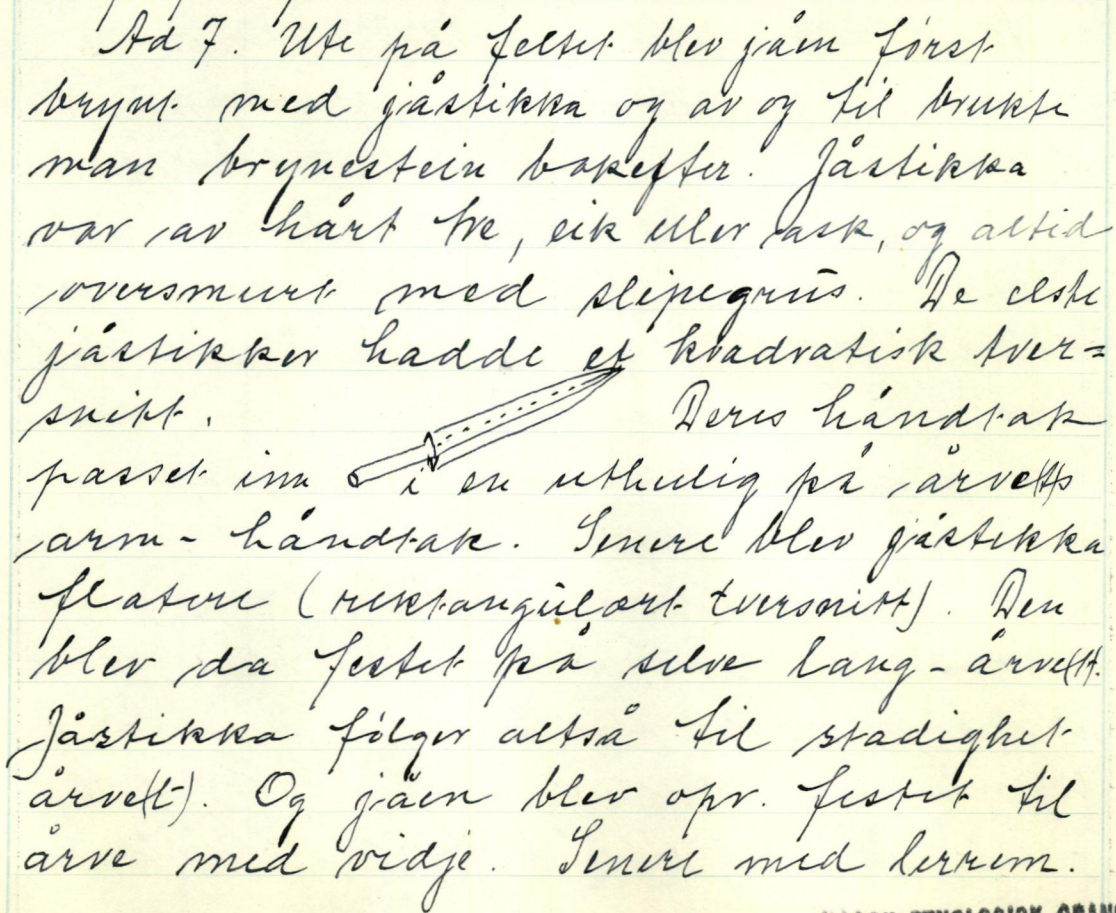 Ad 7. Ute på feltet blev jåen først
brynt med jåstikka og av og til brukte
man brynestein bakefter. Jåstikka
var av hårt tre, eik eller ask, og altid
oversmurt med slipegrus. De elste
jåstikker hadde et kvadratisk tver=
snitt. Deres håndtak
passet inn i en uthulig på årve(t)s
arm - håndtak. Senere blev jåstikka
flatere (rektangulært tversnitt). Den
blev da festet på selve lang - årve(t).
Jåstikka følger altså til stadighet
årve(t). Og jåen blev opr. festet til
årve med vidje. Senere med lerrem.